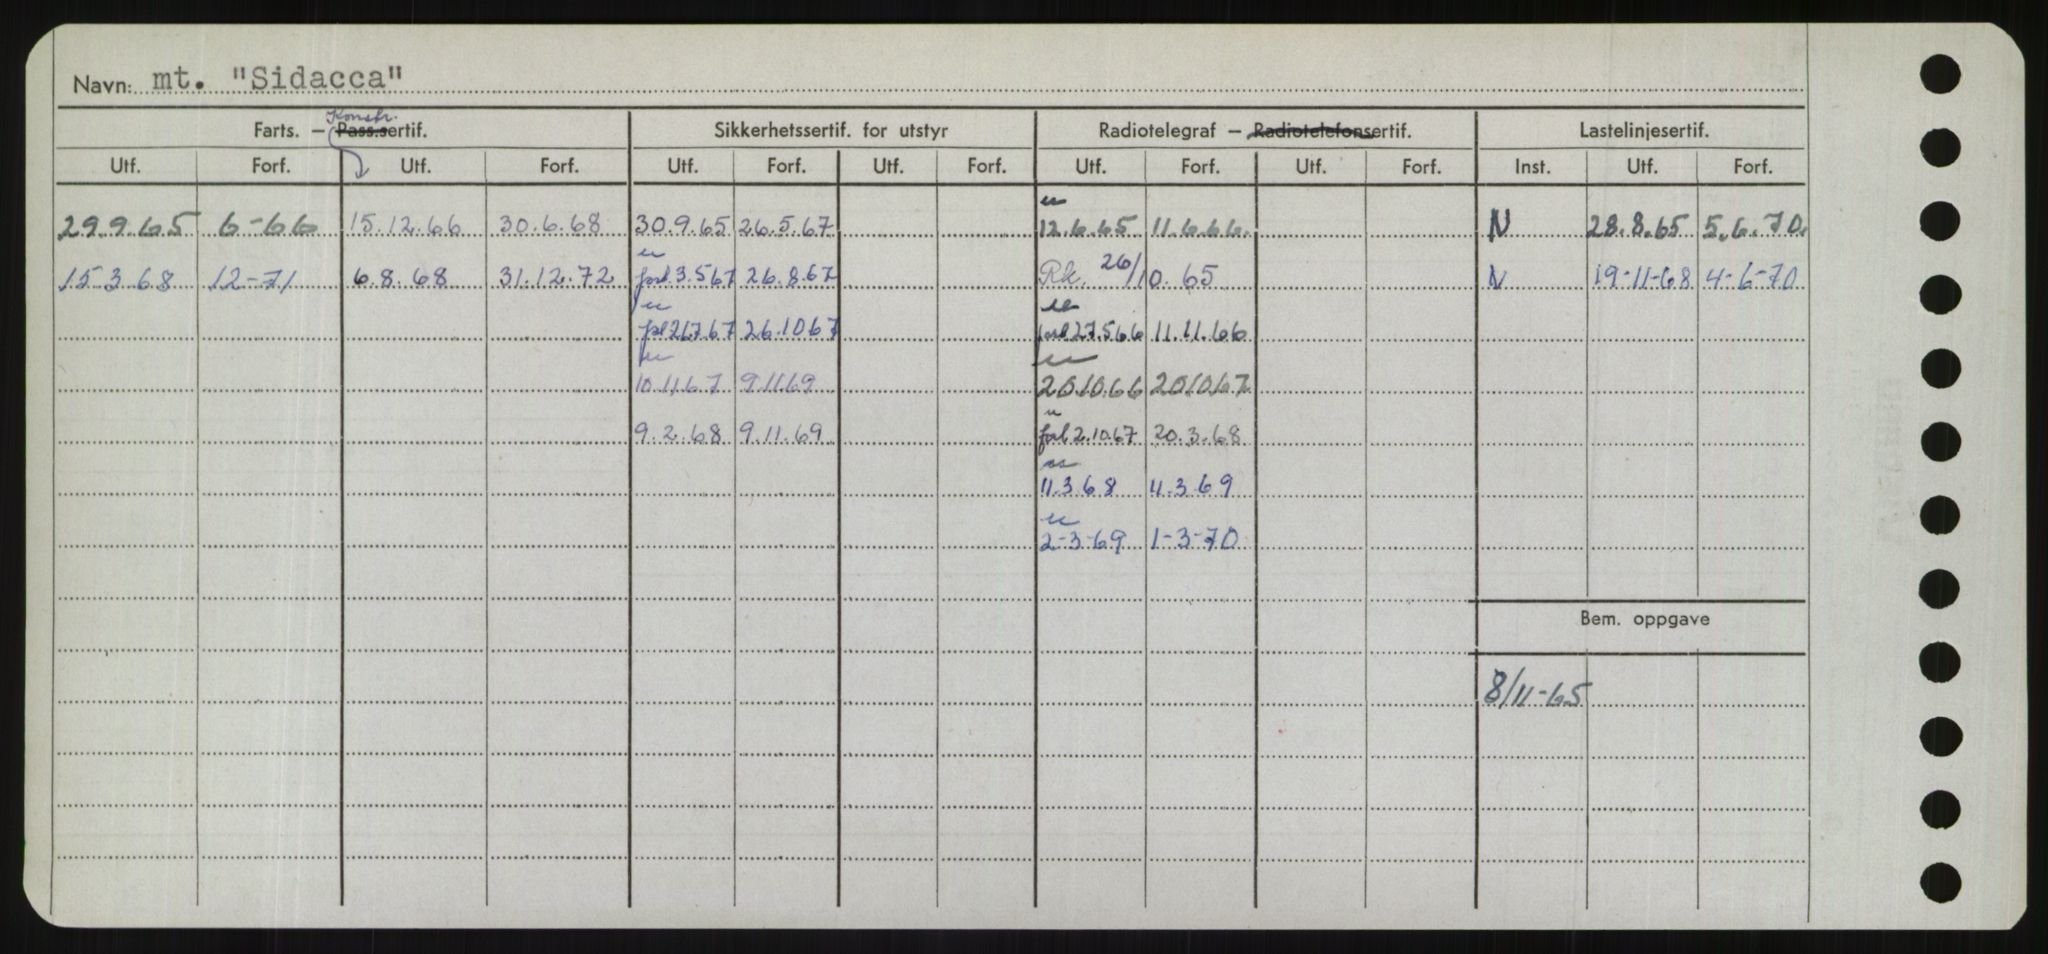 Navn: mt. "Sidacca"
Konstr.
Farts. – Pass.sertif. Sikkerhetssertif. for utstyr Radiotelegraf – Radiotelefonsertif. Lastelinjesertif.
Utf. Forf. Utf. Forf. Utf. Forf. Utf. Forf. Utf. Forf. Utf. Forf. Inst. Utf. Forf.
29.9.65 6-66 15.12.66 30.6.68 30.9.65 26.5.67 12.6.65 11.6.66. N 28.8.65 5.6.70.
15-3.68 12-71 6.8.68 31.12.72 forl 3.5.67 26.8.67 Rk. 26/10.65 N 19-11-68 4-6-70
26.7.67 26.10.67 forl 27.5.66 11.11.66
10.11.67 9.11.69 20.10.66 20.10.67
9.2.68 9.11.69 forl 2.10.67 20.3.68
11.3.68 11.3.69
2-3-69 1-3-70
Bem. oppgave
8/11-65